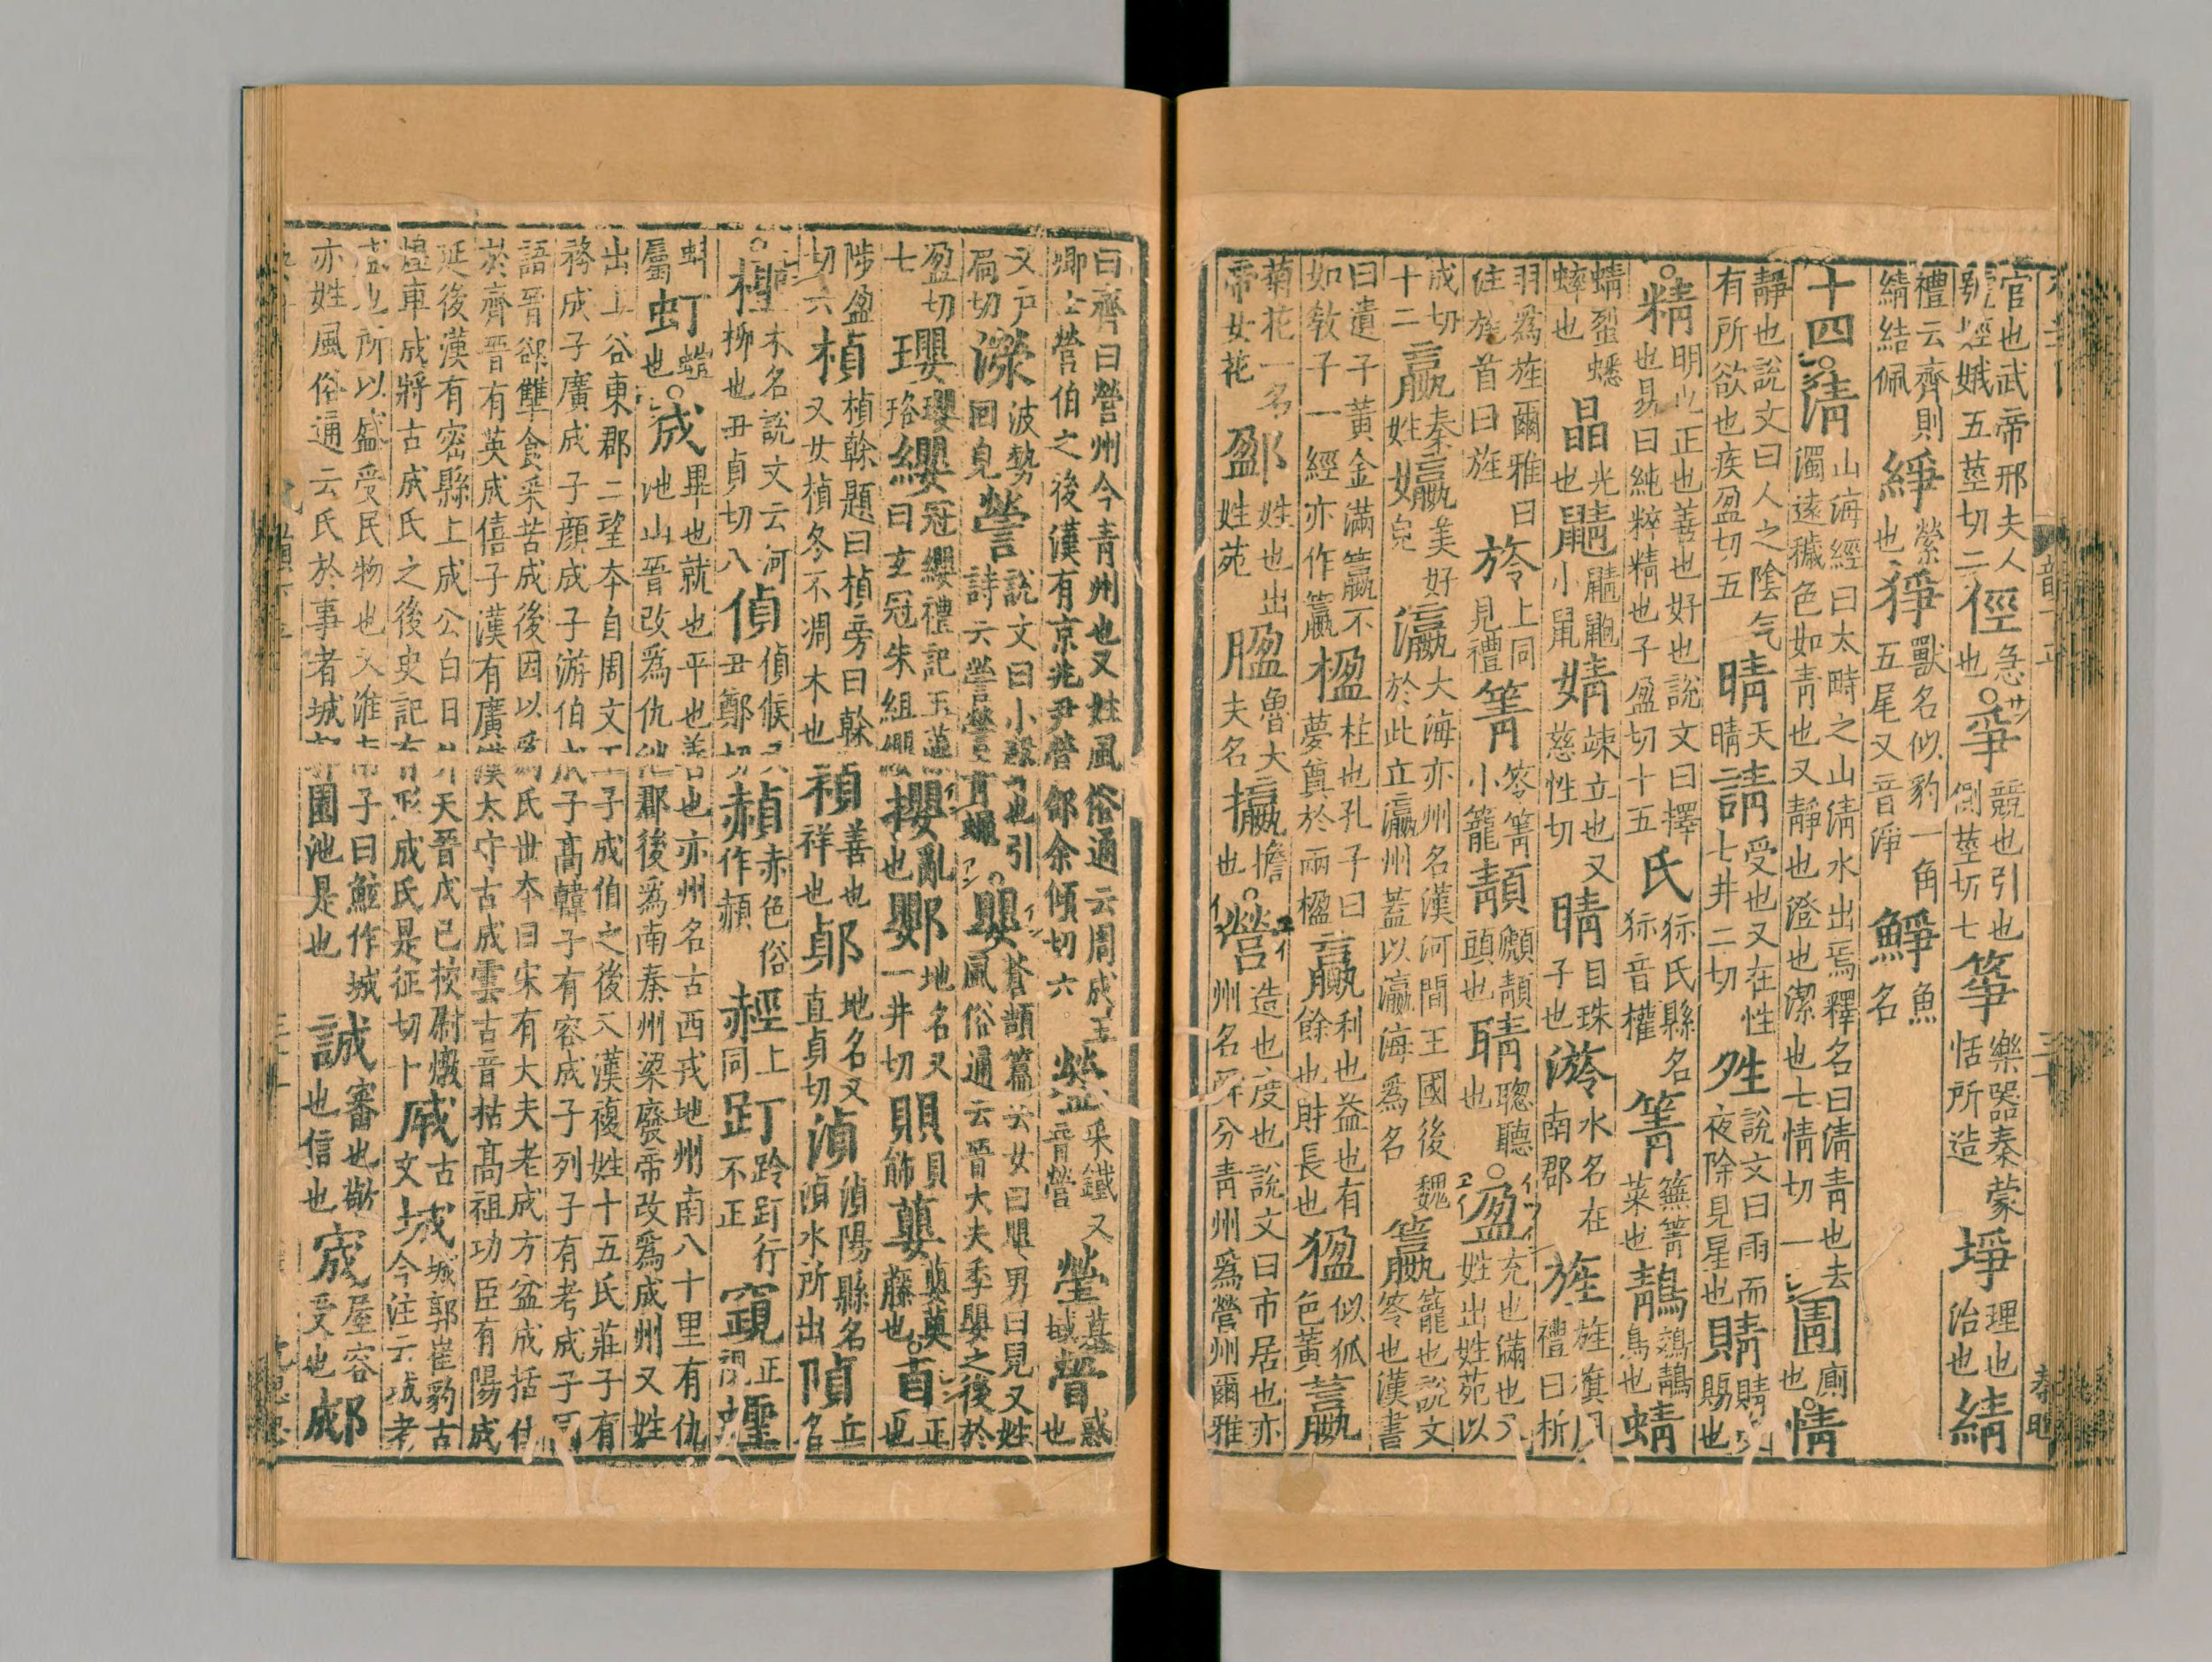 官也武帝邢夫人號娙娥五莖切二俓急也○爭競也引也側莖切七箏樂器秦蒙恬所造埩理也治也綪
禮云齊則綪結佩縈也猙獸名似豹一角五尾又音淨魚名
十四○清山海經曰太時之山清水出焉釋名曰清青也去濁遠穢色如青也又靜也澄也潔也七情切一圊廁也○情
靜也說文曰人之陰气有所欲也疾盈切五晴天晴請受也又在性七井二切夝說文曰雨而夜除見星也䝼賜也
○精明也正也善也好也說文曰擇也易曰純粹精也子盈切十五氏狋氏縣名狋音權箐蕪箐菜也鶄鵁鶄鳥也蜻
蜻蛚蟋蟀也晶光也鼱鼱鼩小鼠婧竦立也又慈性切睛目珠子也水名在南郡旌旌旗周禮曰析
羽爲旌爾雅曰注旄首曰旌旍上同見禮箐笭箐小籠頭也聙聰聽也○盈充也滿也又姓出姓苑以
成切十二嬴秦姓㜲美好皃瀛大海亦州名漢河間王國後魏於此立瀛州蓋以瀛海爲名籯籠也說文笭也漢書
曰遺子黃金滿籯不如教子一經亦作籝楹柱也孔子曰夢奠於兩楹贏利也益也有餘也財長也似狐色黃
菊花一名帝女花姓也出姓苑魯大夫名攍擔也○營造也度也說文曰市居也亦州名舜分青州爲營州爾雅
曰齊曰營州今青州也又姓風俗通云周成王卿士營伯之後漢有京兆尹營郃余傾切六采鐵又音營塋墓域惑也
又戶扃切濴波勢回皃謍說文曰小聲也引詩云謍謍青蠅○嬰蒼頡篇云女曰嬰男曰兒又姓風俗通云晉大夫季嬰之後於
盈切七瓔瓔珞纓冠纓禮記玉藻曰玄冠朱組纓攖亂也地名又一井切賏貝飾蘡蘡薁藤也○貞正也
陟盈切六楨楨榦題曰楨旁曰榦又女楨冬不凋木也禎善也祥也地名又直貞切湞湞陽縣名湞水所出丘名
○檉木名說文云河柳也丑貞切八偵偵候又丑鄭切赬赤色俗作頳上同行不正正視蟶
蚌屬虰也○成畢也就也平也善也亦州名古西戎地州南八十里有仇池山晉改爲仇池郡後爲南秦州梁廢帝改爲成州又姓
出上谷東郡二望本自周文王子成伯之後又漢複姓十五氏莊子有務成子廣成子顏成子游伯成子高韓子有容成子列子有考成子國
語晉郤犨食采苦成後因以爲氏世本曰宋有大夫老成方盆成括仕於齊晉有英成僖子漢有廣漢太守古成雲古音枯高祖功臣有陽成
延後漢有密縣上成公白日升天晉戊己校尉燉煌車成將古成氏之後史記有形成氏是征切十古文城城郭崔豹古今注云城者
盛也所以盛受民物也又淮南子曰鯀作城亦姓風俗通云氏於事者城郭園池是也誠審也敬也信也宬屋容受也郕